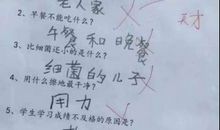 老人家
2、早餐不能吃什么?
天才
午餐和晚餐
3、比细菌还小的是什么?
细菌的儿子
4、用什么擦地最干净?
用力
5、学生学习成绩不及格的原因是?